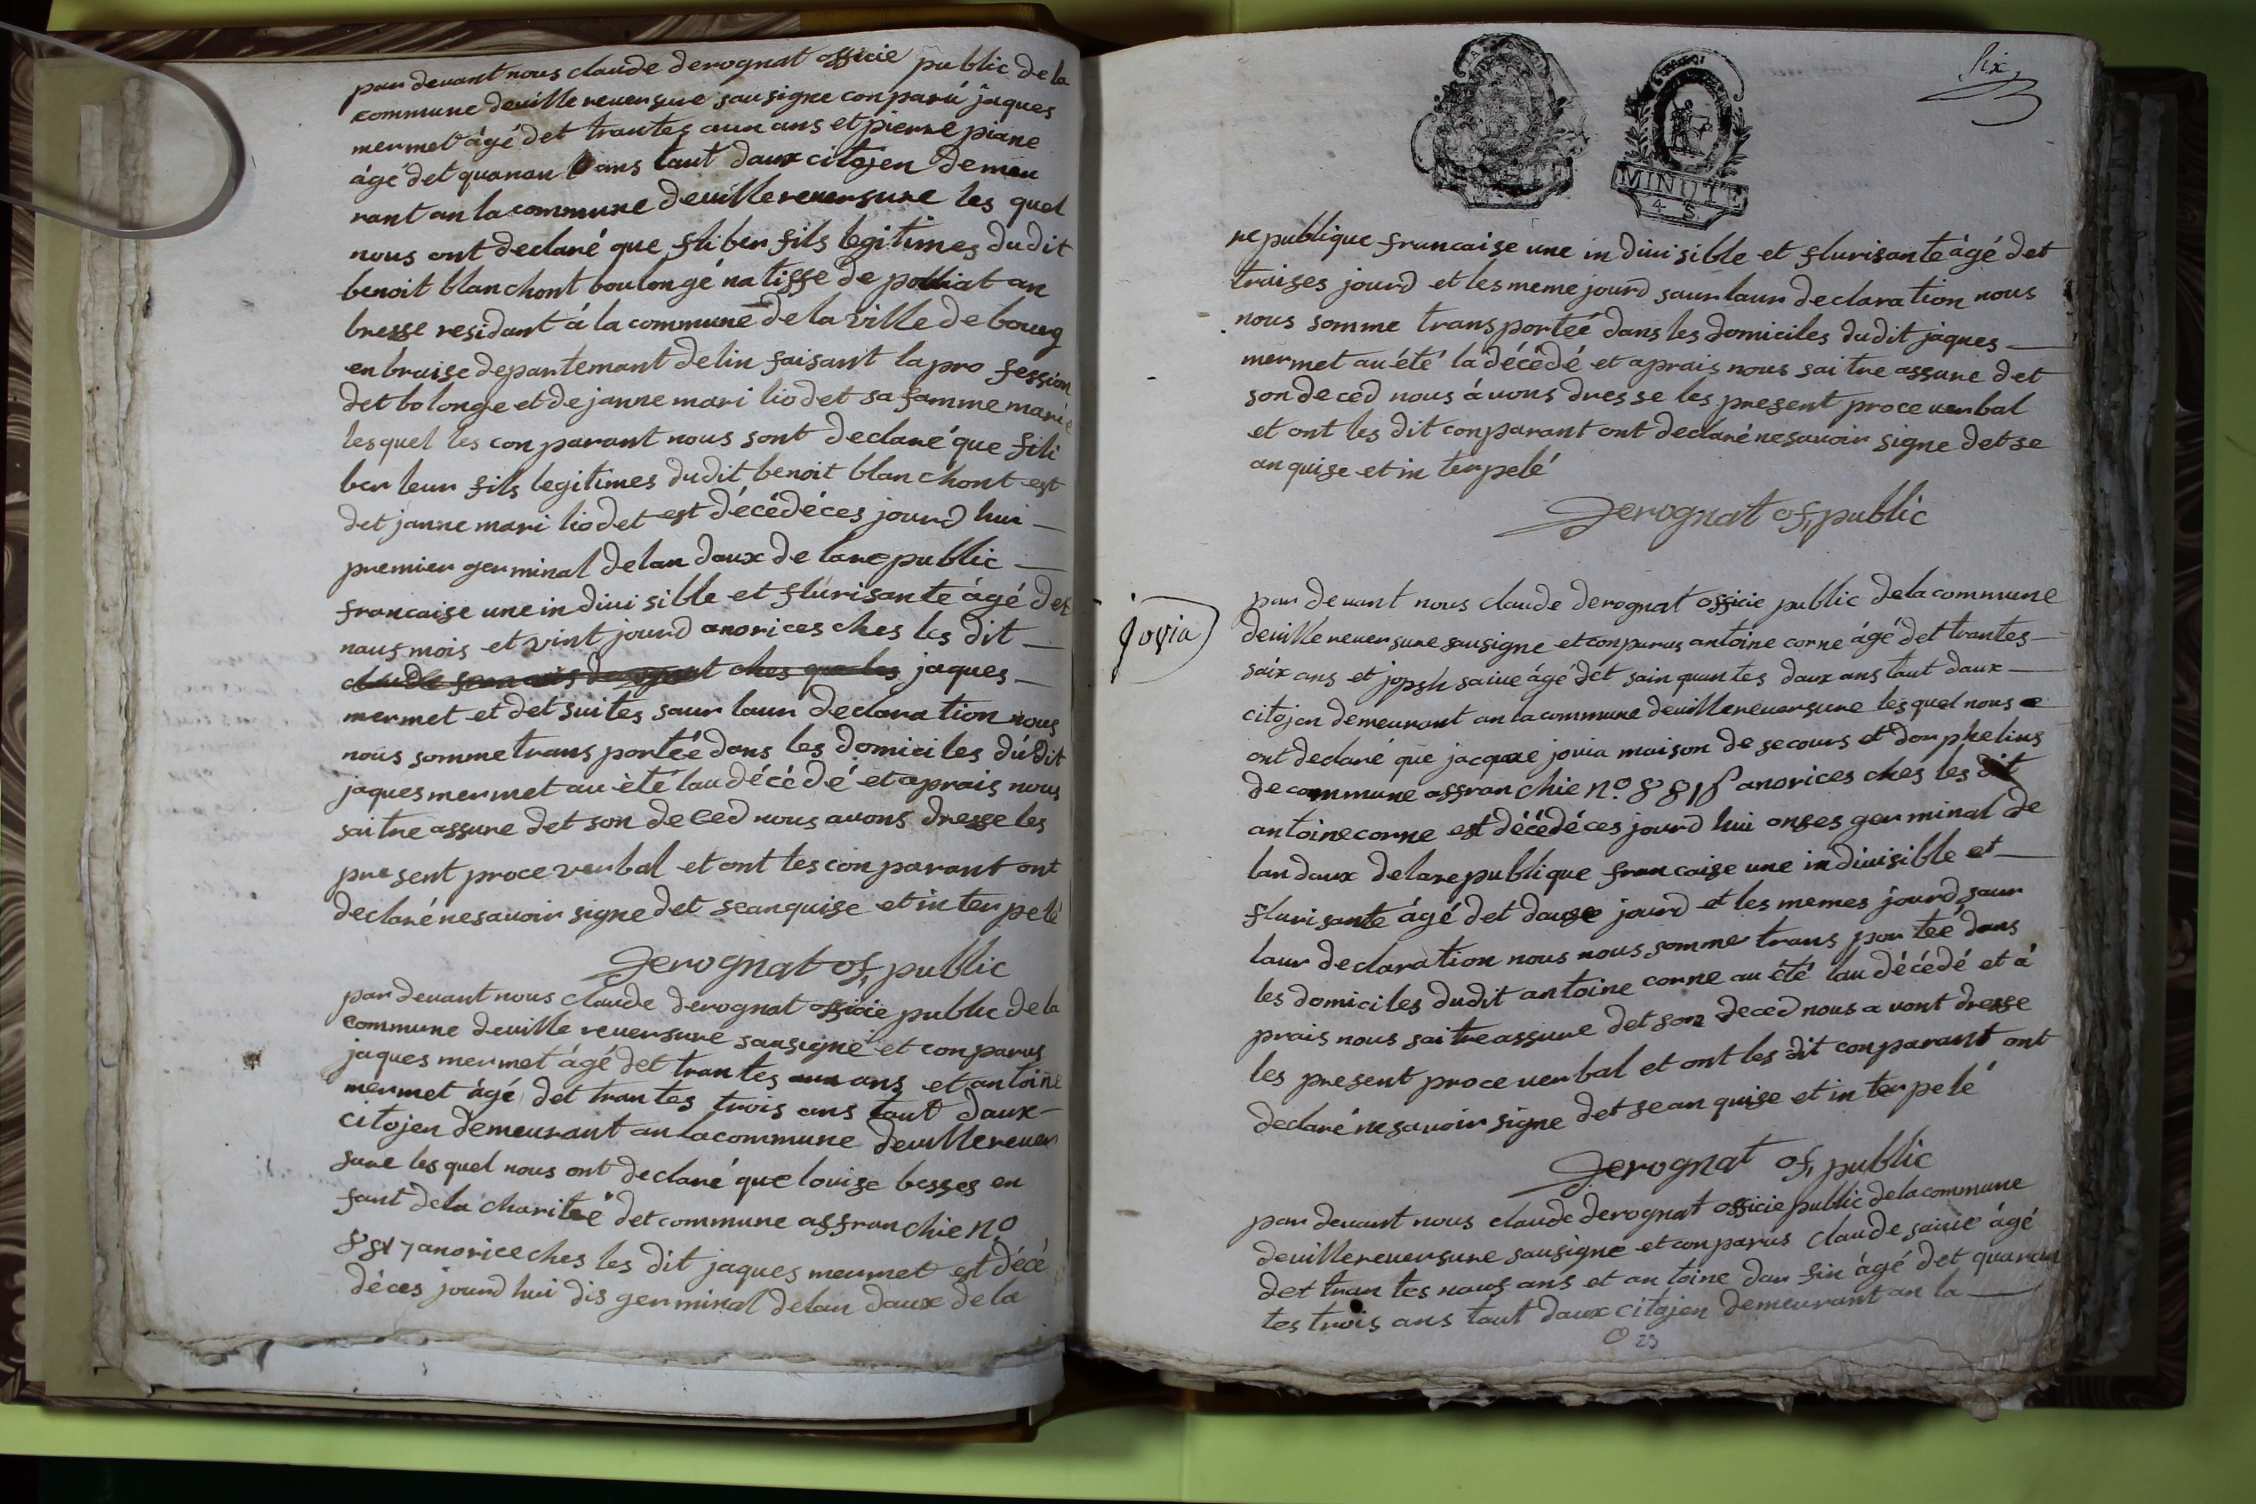 par devant nous claude derognat officie public de la
commune deville reversure sausigne conparu jaques
mermet âgé det trantes aun ans et pierre piane
âgé det quaran ans taut daux citojen demeu
rant an la commune deville reversure les quel
nous ont declaré que fliber fils legitimes dudit
benoit blanchont boulongé natisse de polliat an
bresse residant á la commune de la ville de bourg
en braise departemant delin faisant la pro fession
det bolonge et de janne mari liodet sa famme marié
lesquel les conparant nous sont declaré que fili
ber leur fils legitimes dudit benoit blanchont est
det janne mari liodet est décédé ces jourd hui
premier germinal delan daux de lare public
francaise une in divi sible et flurisante âgé det
naus mois et vint jourd anorices ches les dit
ches que les jaques
mermet et det suites saur laur declaration nous
nous somme trans portéé dans les domiciles dudit
jaques mermet au été lau décédé et aprais nous
saitre assure det son deced nous avons dresse les
present proce verbal et ont les conparant ont
declaré nesavoir signe det seanquise et in terpelé
Derognat of, public
par devant nous claude derognat officie public de la
commune deville reversure sausigne et conparus
jaques mermet âgé det trantes aun ans et antoine
mermet âgé det trantes trois ans taut daux
citojen demeurant an la commune deville rever
sure les quel nous ont declaré que louise besses en
fant de la charitéé det commune affranchie no.
8817 anorice ches les dit jaques mermet est décé
dé ces jourd hui dis germinal delan daux de la
six
MINUTE
4 S
re publique francaise une in divi sible et flurisante âgé det
traises jourd et les meme jourd saur laur declaration nous
nous somme trans portéé dans les domiciles dudit jaques
mermet au été la décédé et aprais nous saitre assure det
son deced nous á vons dresse les present proce verbal
et ont les dit conparant ont declaré nesavoir signe det se
an quise et in terpelé
Derognat of, public
jovia
par devant nous claude derognat officie public de la commune
deville reversure sausigne et conparus antoine corne âgé det trantes
saix ans et jopsh saive âgé det sainquantes daux ans taut daux
citojen demeurant an la commune deville reversure les quel nous
ont declaré que jacque jovia maison de secours et dorphelins
de commune affran chie no. 8818 anorices ches les dit
antoine corne est décédé ces jourd hui onses germinal de
lan daux delare publique francaise une indivisible et
flurisante âgé det dause jourd et les memes jourd saur
laur declaration nous nous somme trans portéé dans
les domiciles dudit antoine corne au été lau décédé et á
prais nous saitre assure det son deced nous a vont dresse
les present proce verbal et ont les dit conparant ont
declaré nesavoir signe det sean quise et in terpelé
Derognat of, public
par devant nous claude derognat officie public de la commune
deville reversure sausigne et conparus claude saive âgé
det trantes naus ans et antoine dar fin âgé det quaran
tes trois ans taut daux citojen demeurant an la
23